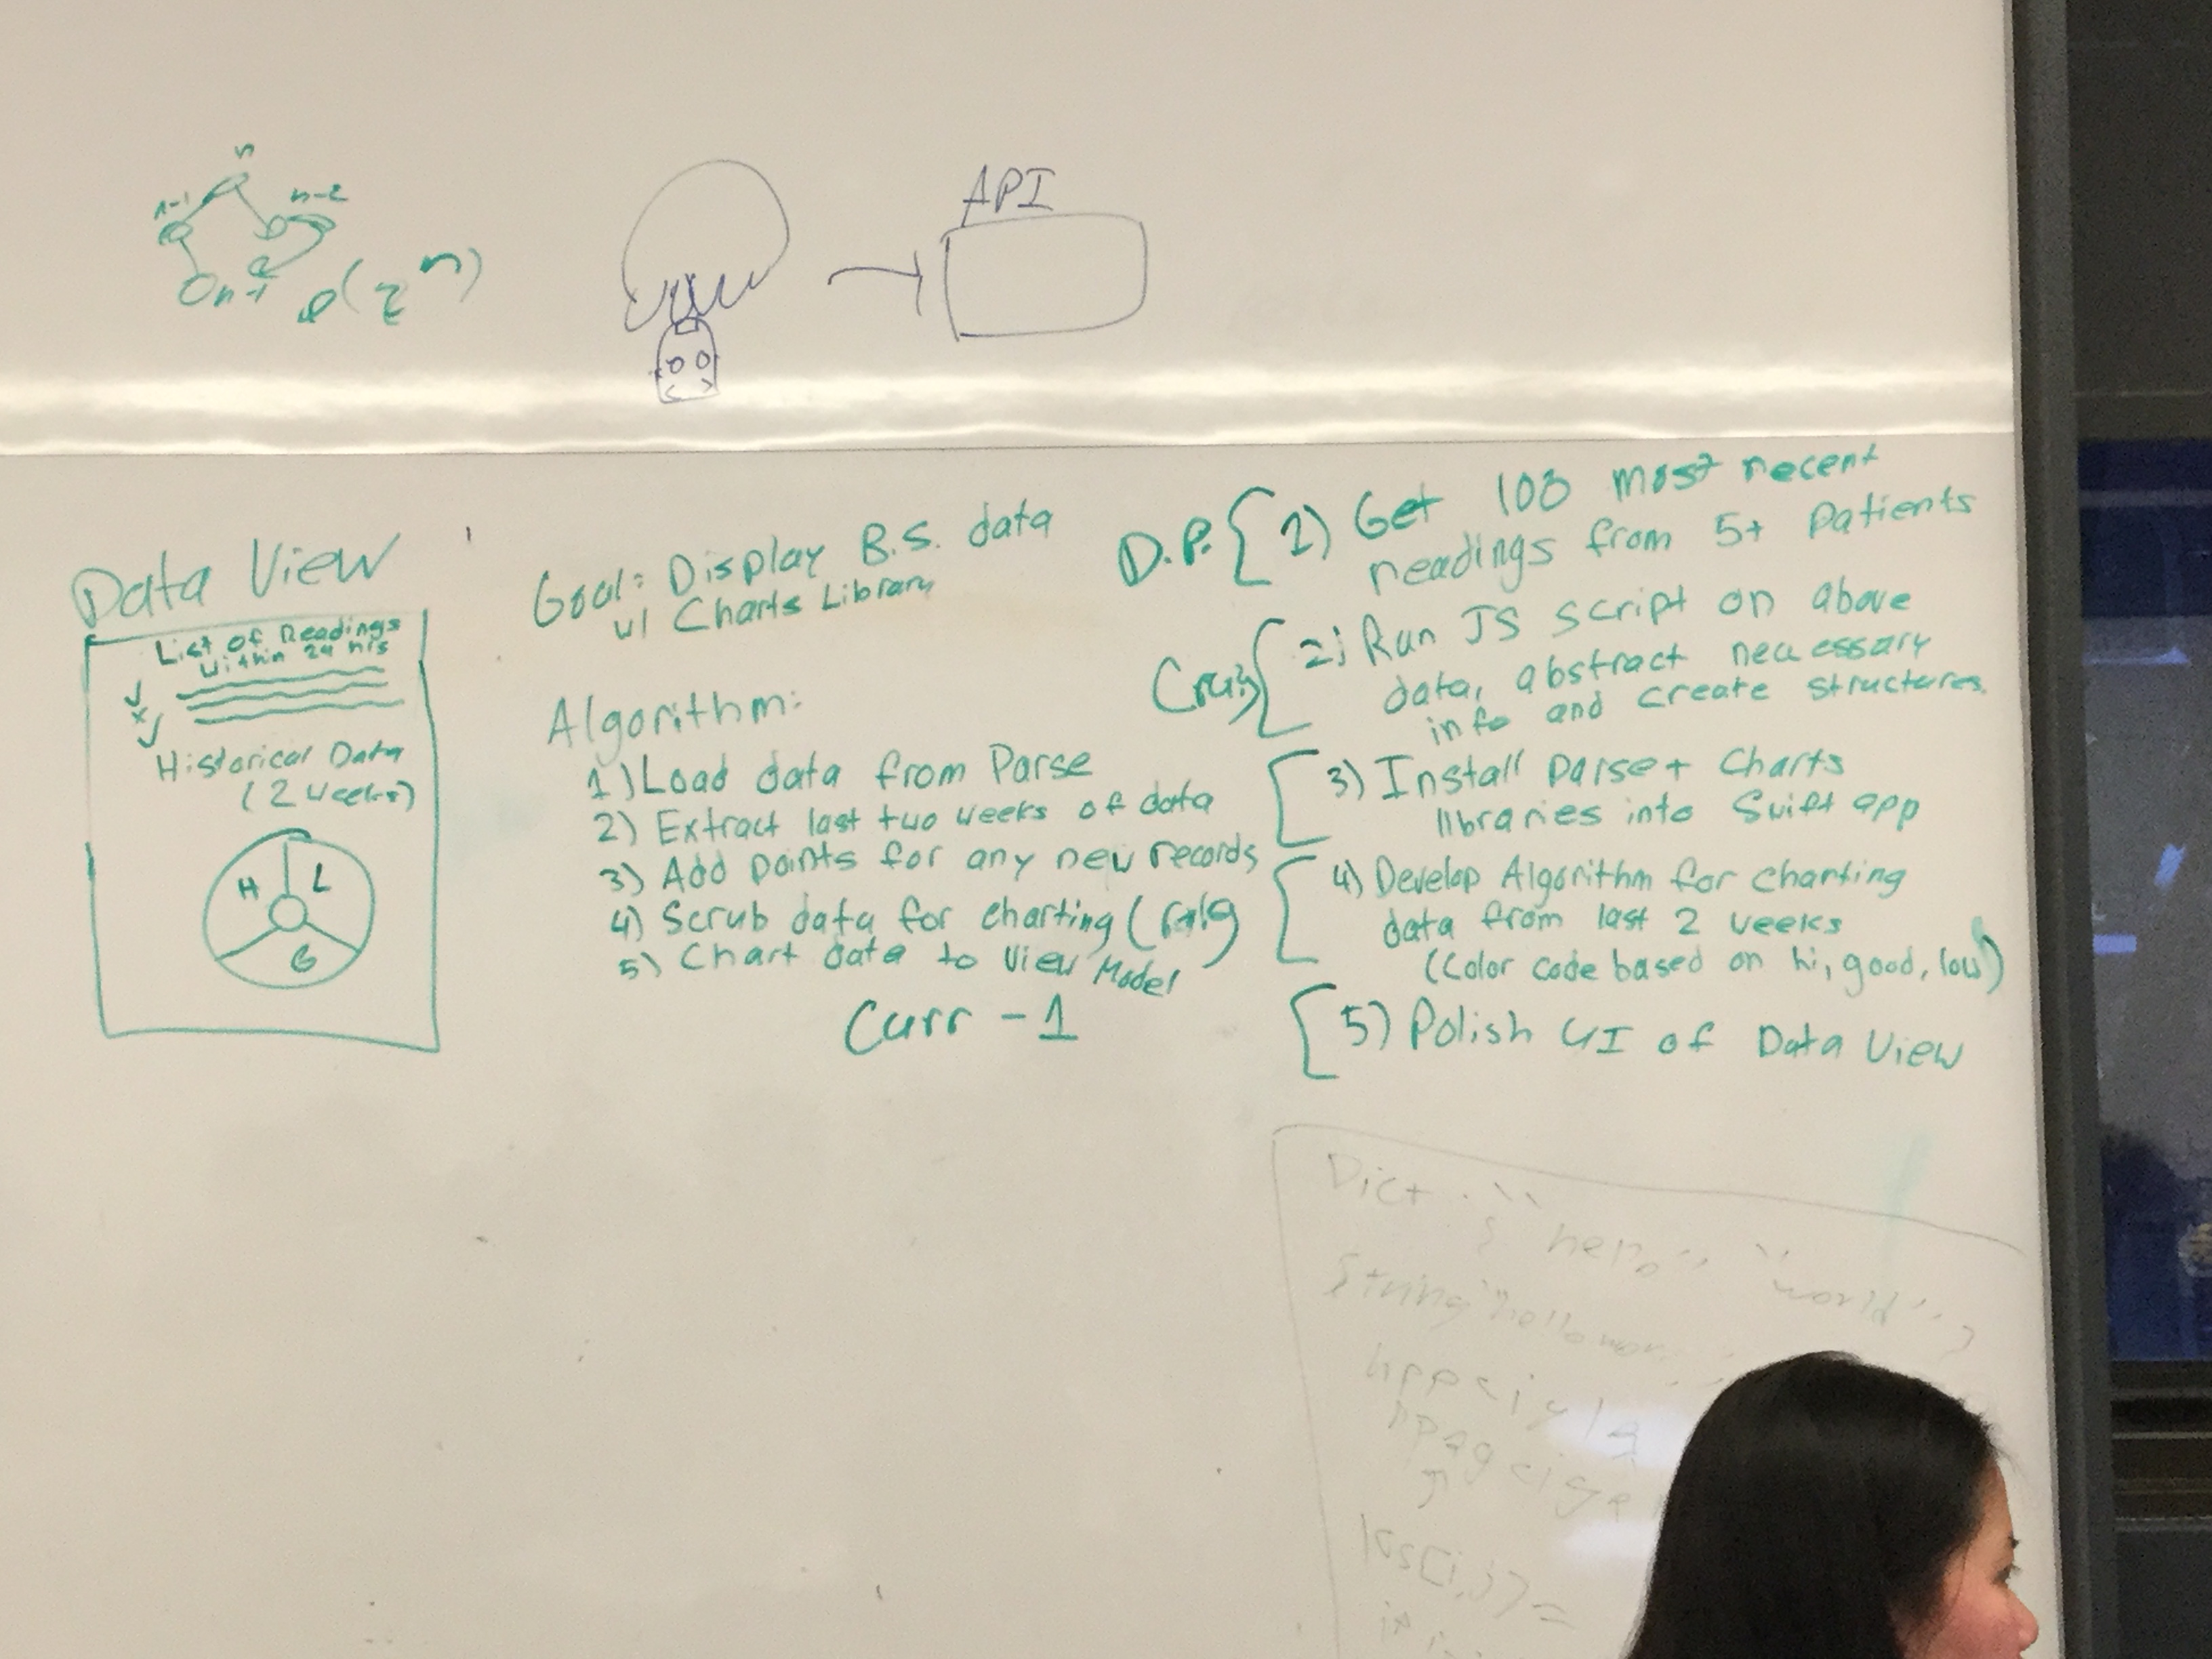 n
n-1
n-2
n-1
O(2^n)
API
Data View
List of Readings
within 24 hrs
Historical Data
(2 weeks)
H
L
G
Goal: Display B.S. data
w/ Charts Library
Algorithm:
1) Load data from Parse
2) Extract last two weeks of data
3) Add points for any new records
4) Scrub data for charting
5) Chart data to View Model
Curr - 1
D.P. { 1) Get 100 most recent
readings from 5+ Patients
2) Run JS script on above
data, abstract necessary
info and create structures.
3) Install Parse + Charts
libraries into Swift app
4) Develop Algorithm for charting
data from last 2 weeks
(Color code based on hi, good, low)
5) Polish UI of Data View
Dict
{ "hello" "world" }
String "hello
lcs[i,j] =